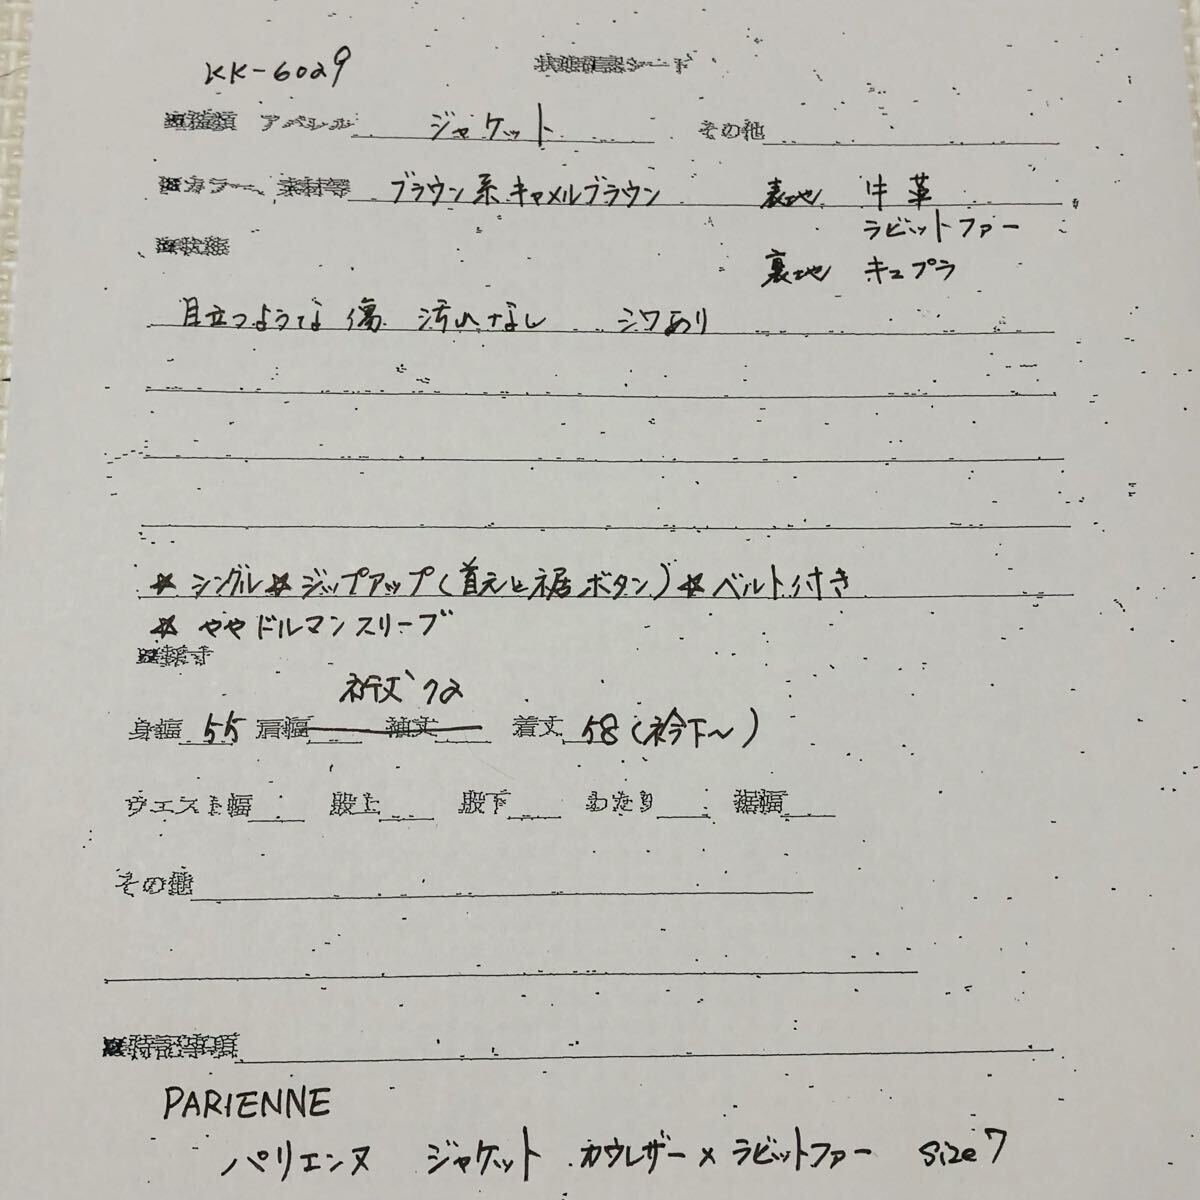 KK-6029 状態確認シード
種類 アパレル ジャケット その他
カラー、素材等 ブラウン系キャメルブラウン 表地 牛革
ラビットファー
状態
裏地 キュプラ
目立つような傷 汚れなし シワあり
☆シングル☆ジップアップ(首元と裾ボタン)☆ベルト付き
☆ややドルマンスリーブ
採寸
裄丈 72
身幅 55 肩幅 袖丈 着丈 58(衿下~)
ウエスト幅 股上 股下 わたり 裾幅
その他
特記事項
PARIENNE
パリエンヌ ジャケット カウレザー×ラビットファー size7